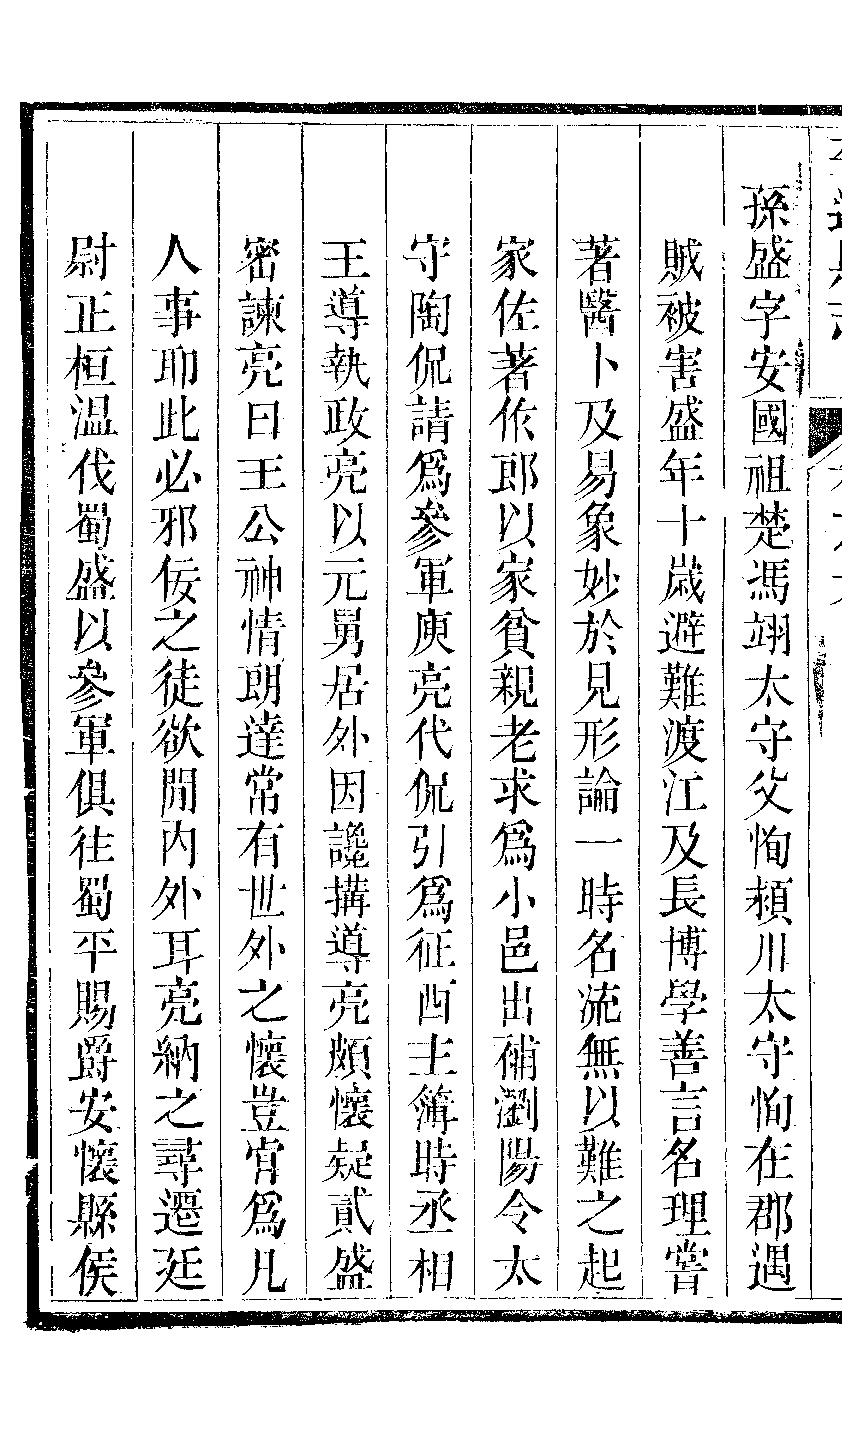 孫盛字安國祖楚馮翊太守父恂潁川太守恂在郡遇
賊被害盛年十歲避難渡江及長博學善言名理嘗
著醫卜及易象妙於見形論一時名流無以難之起
家佐著作郎以家貧親老求爲小邑出補瀏陽令太
守陶侃請爲參軍庾亮代侃引爲征西主簿時丞相
王導執政亮以元舅居外因讒搆導亮頗懷疑貳盛
密諫亮曰王公神情朗達常有世外之懷豈肯爲凡
人事耶此必邪佞之徒欲閒內外耳亮納之尋遷廷
尉正桓温伐蜀盛以參軍俱往蜀平賜爵安懷縣侯